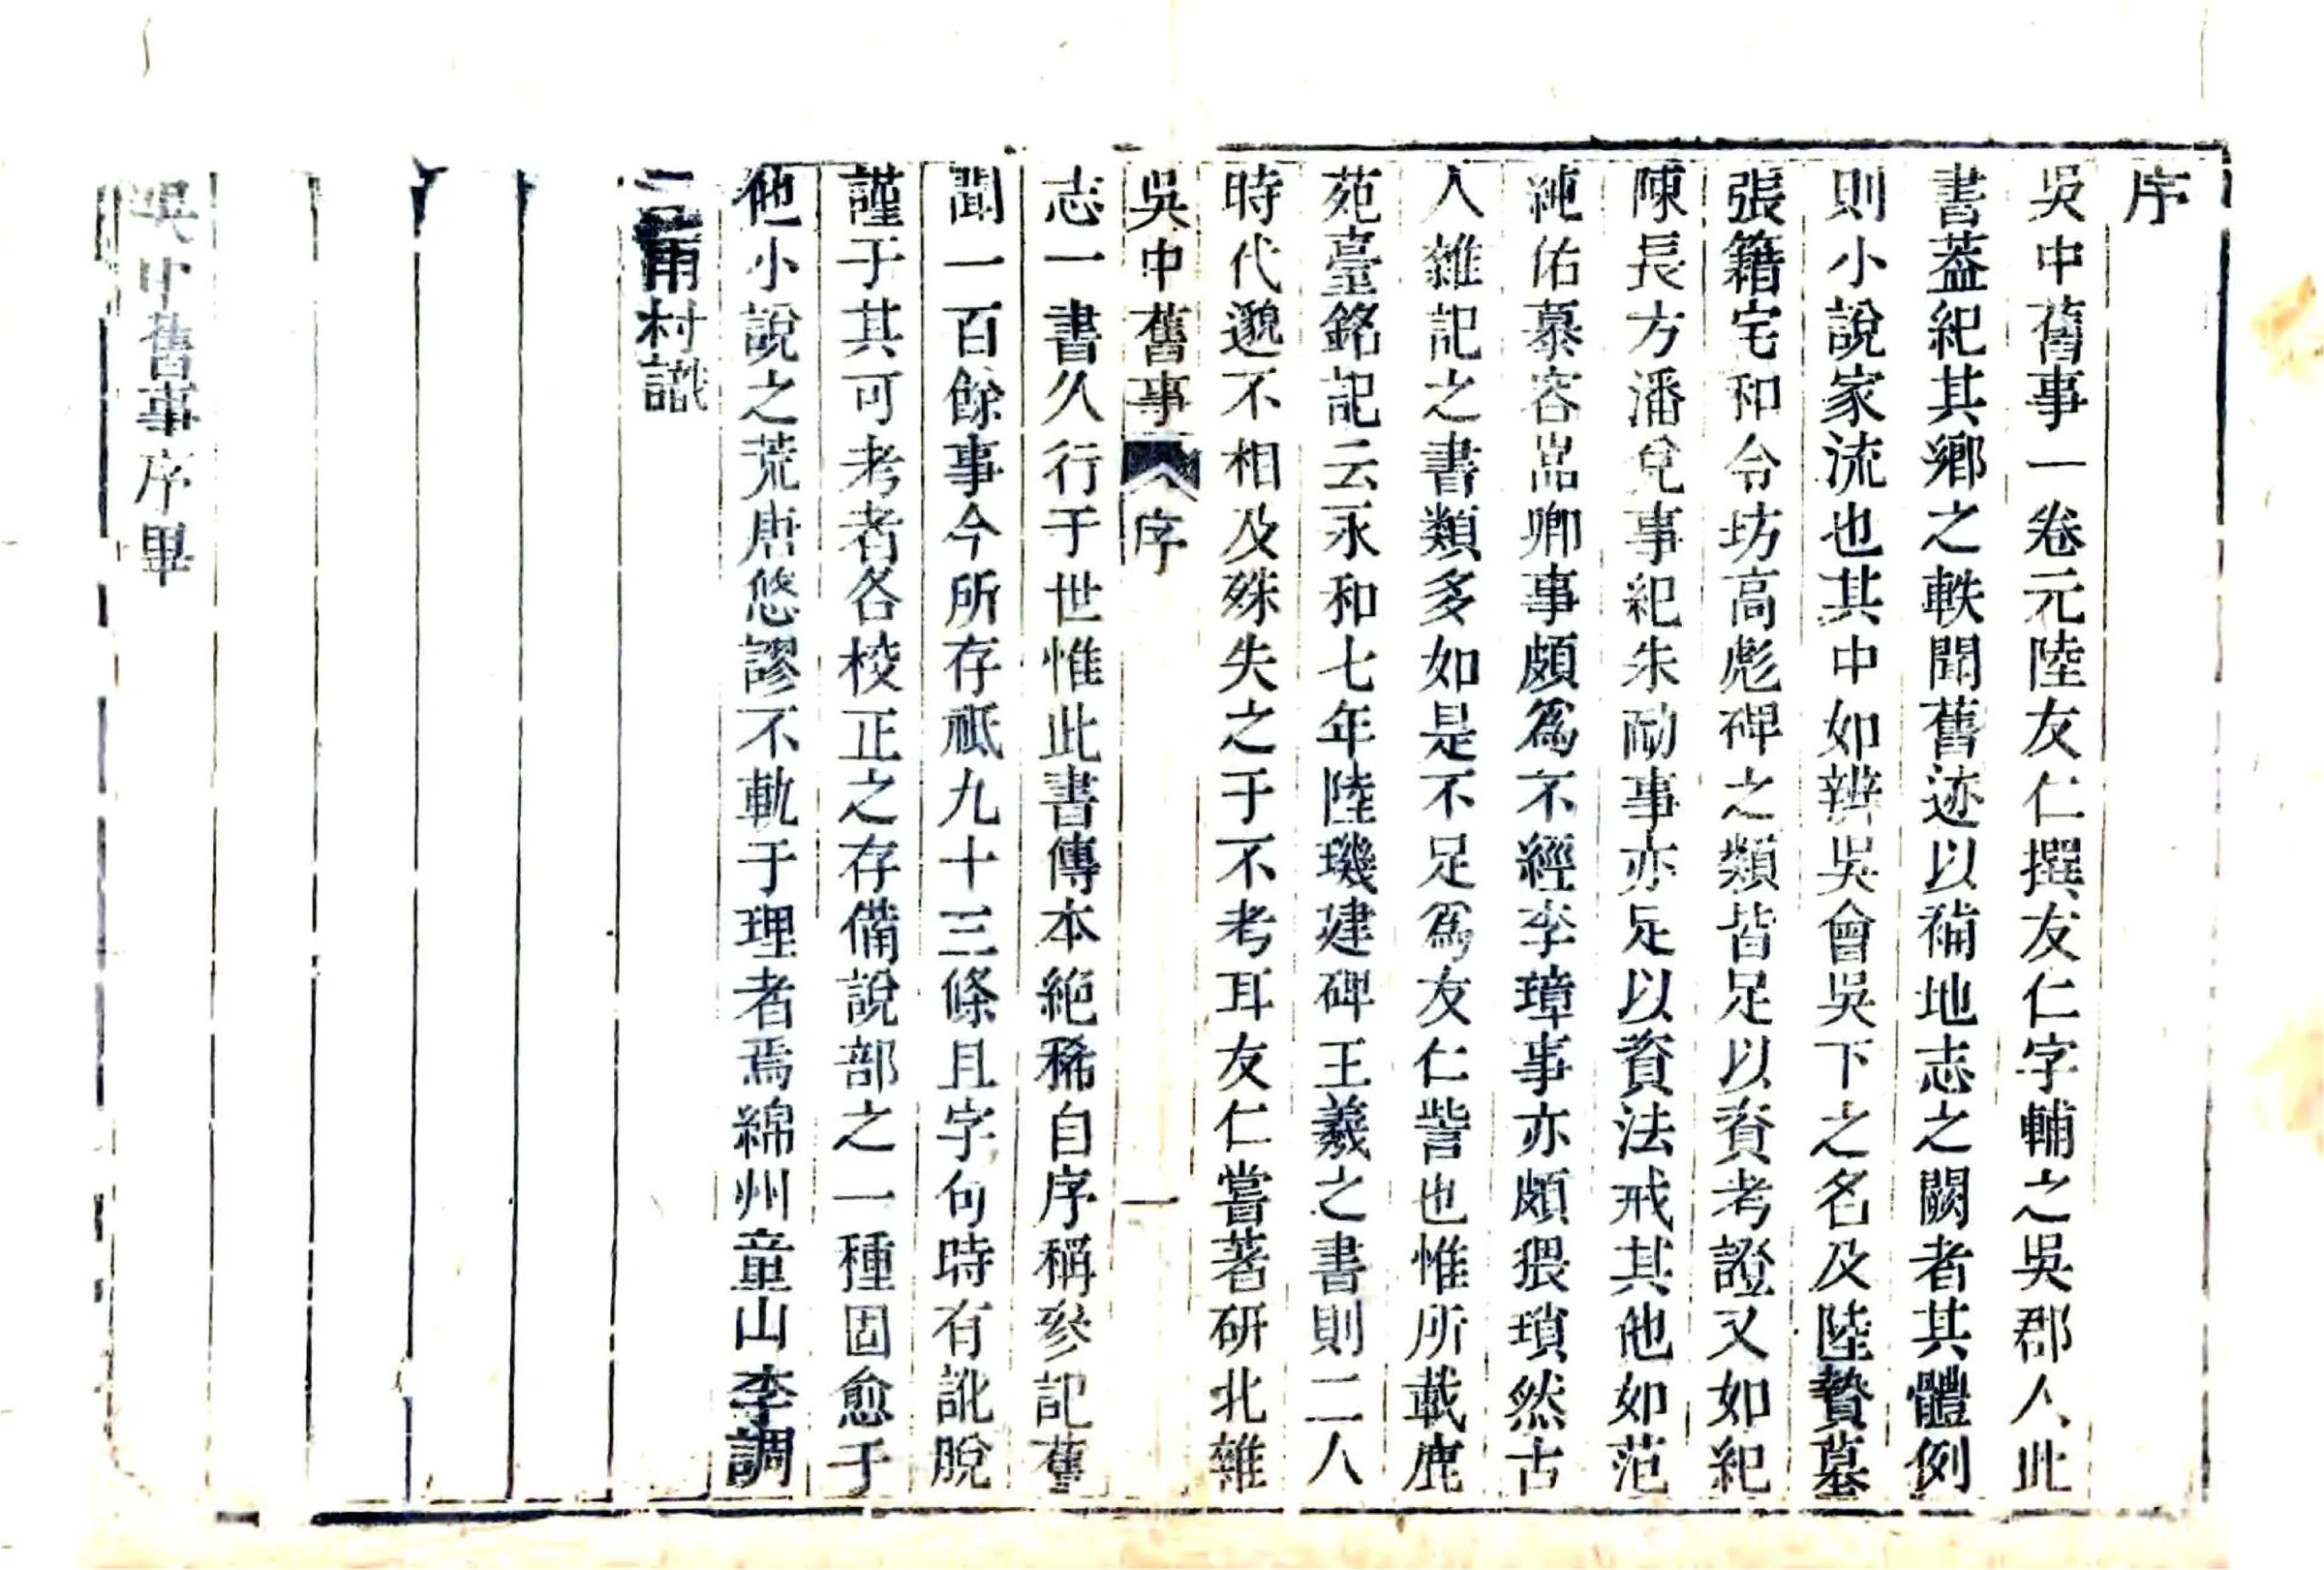 序
吳中舊事一卷元陸友仁撰友仁字輔之吳郡人此
書葢紀其鄉之軼聞舊迹以補地志之闕者其體例
則小說家流也其中如辨吳會吳下之名及陸贄墓
張籍宅和令坊高彪碑之類皆足以資考證又如紀
陳長方潘兌事紀朱勔事亦足以資法戒其他如范
純佑慕容嵓卿事頗爲不經李璋事亦頗猥瑣然古
人雜記之書類多如是不足爲友仁訾也惟所載鹿
苑臺銘記云永和七年陸璣建碑王羲之書則二人
時代邈不相及殊失之于不考耳友仁嘗著研北雜
吳中舊事 序 一
志一書久行于世惟此書傳本絶稀自序稱叅記舊
聞一百餘事今所存祗九十三條且字句時有訛脫
謹于其可考者各校正之存備說部之一種固愈于
他小說之荒唐悠謬不軌于理者焉綿州童山李調
元雨村識
吳中舊事序畢